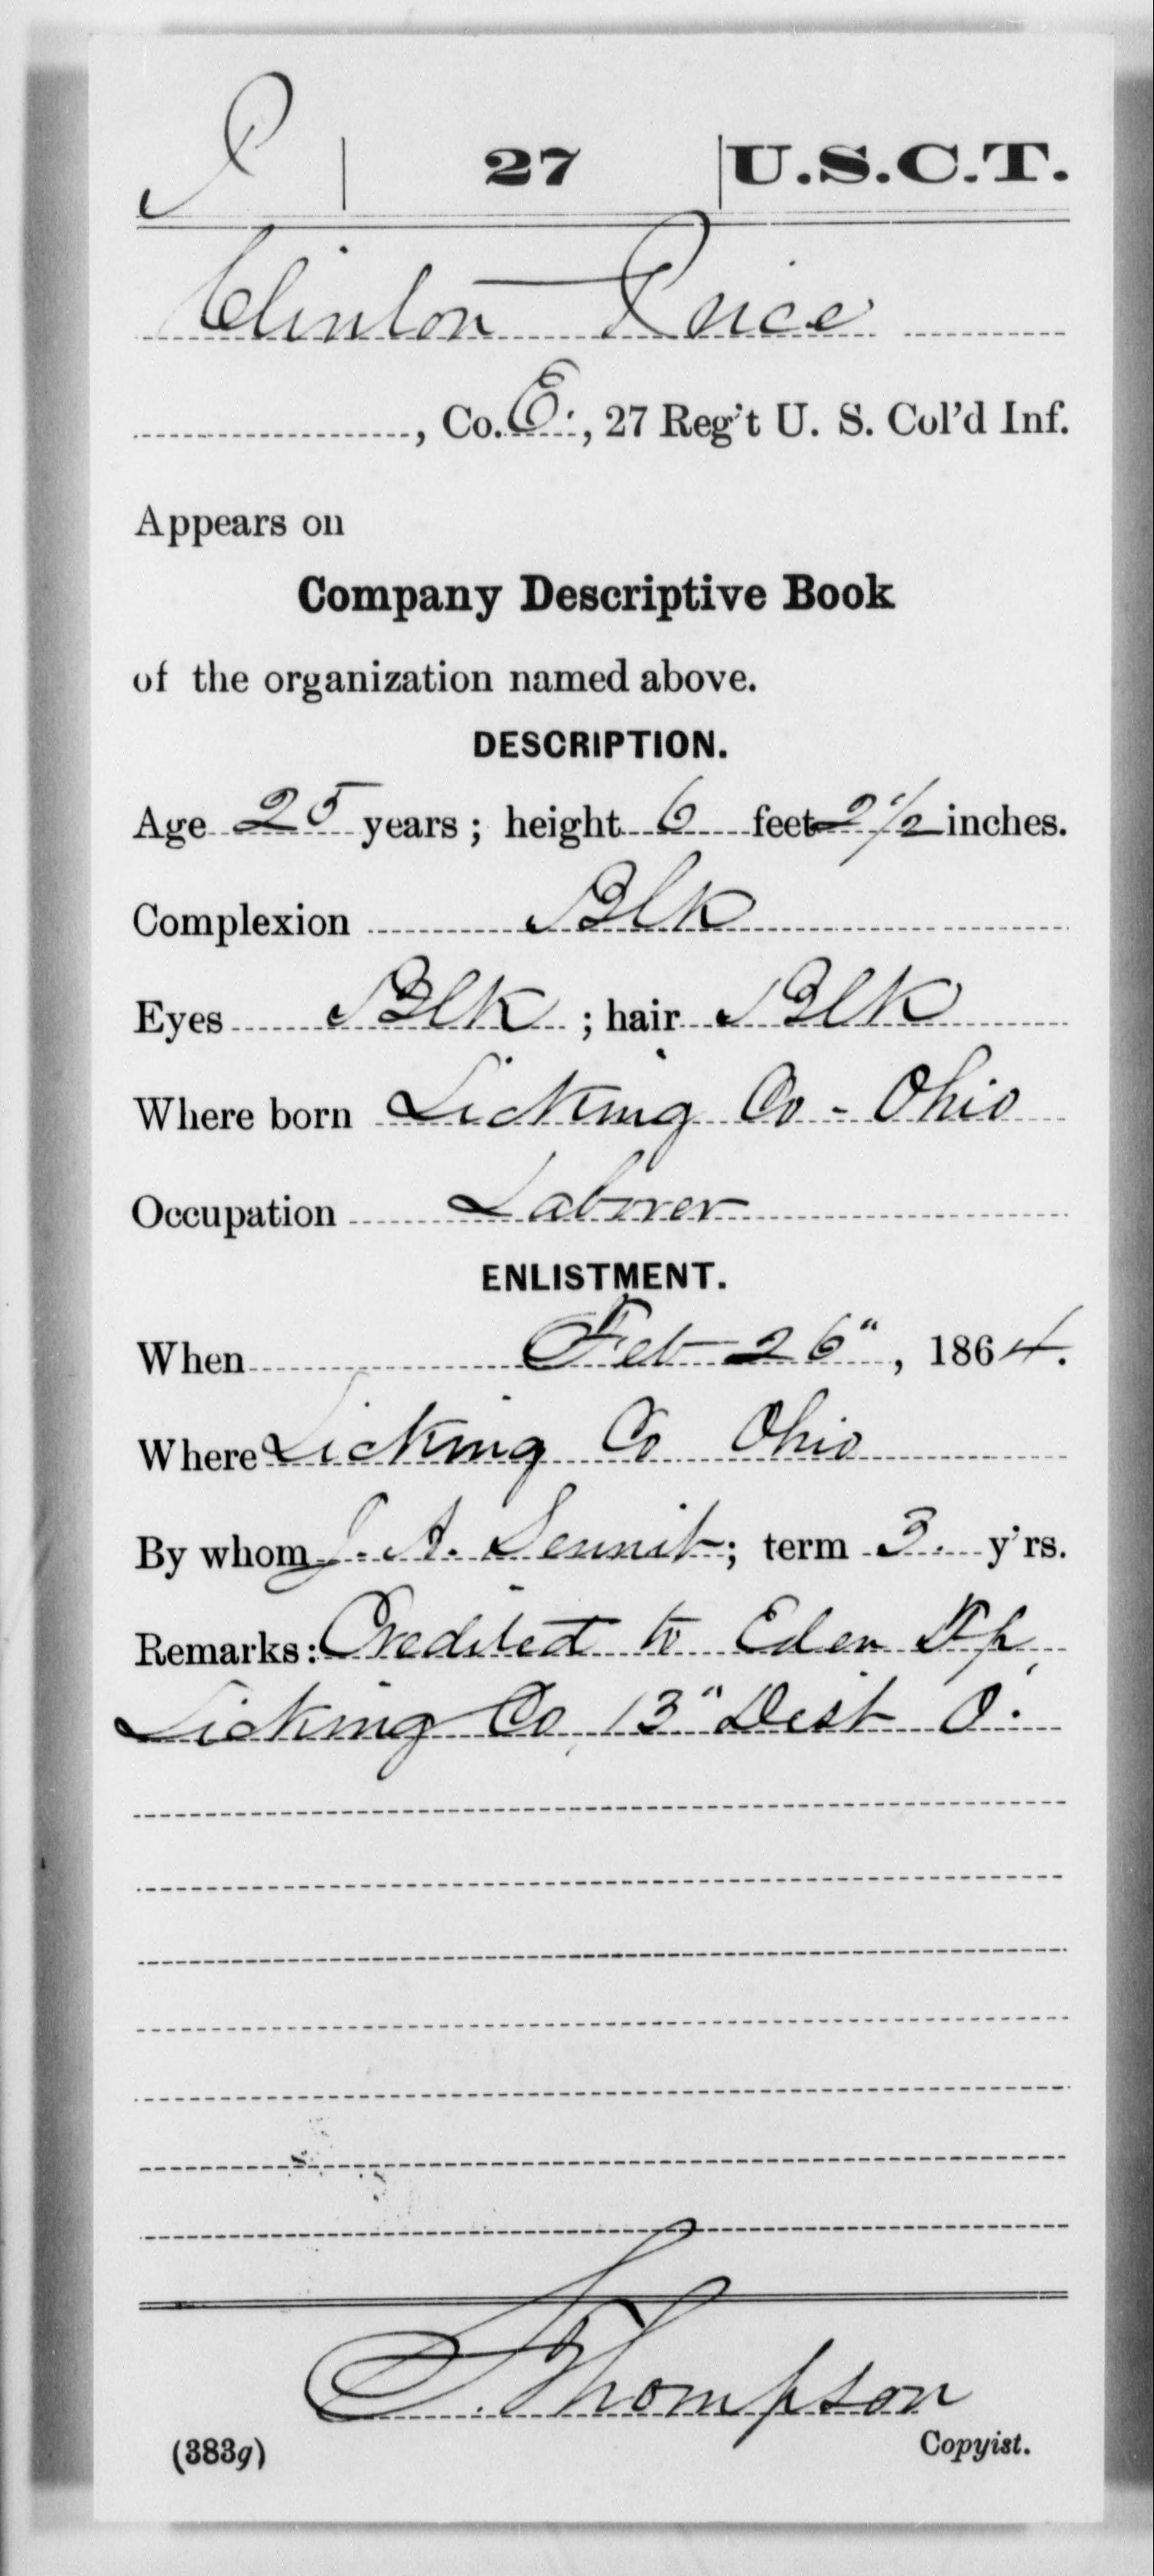 P | 27 | U.S.C.T.
Clinton Price
, Co. E., 27 Reg't U. S. Col'd Inf.
Appears on
Company Descriptive Book
of the organization named above.
DESCRIPTION.
Age 25 years; height 6 feet 2 1/2 inches.
Complexion Blk
Eyes Blk ; hair Blk
Where born Licking Co - Ohio
Occupation Laborer
ENLISTMENT.
When Feb 26", 1864.
Where Licking Co Ohio
By whom J. A. ; term 3. y'rs.
Remarks: Credited to Eden Tp,
Licking Co, 13" Dist O.
Thompson
(383g) Copyist.